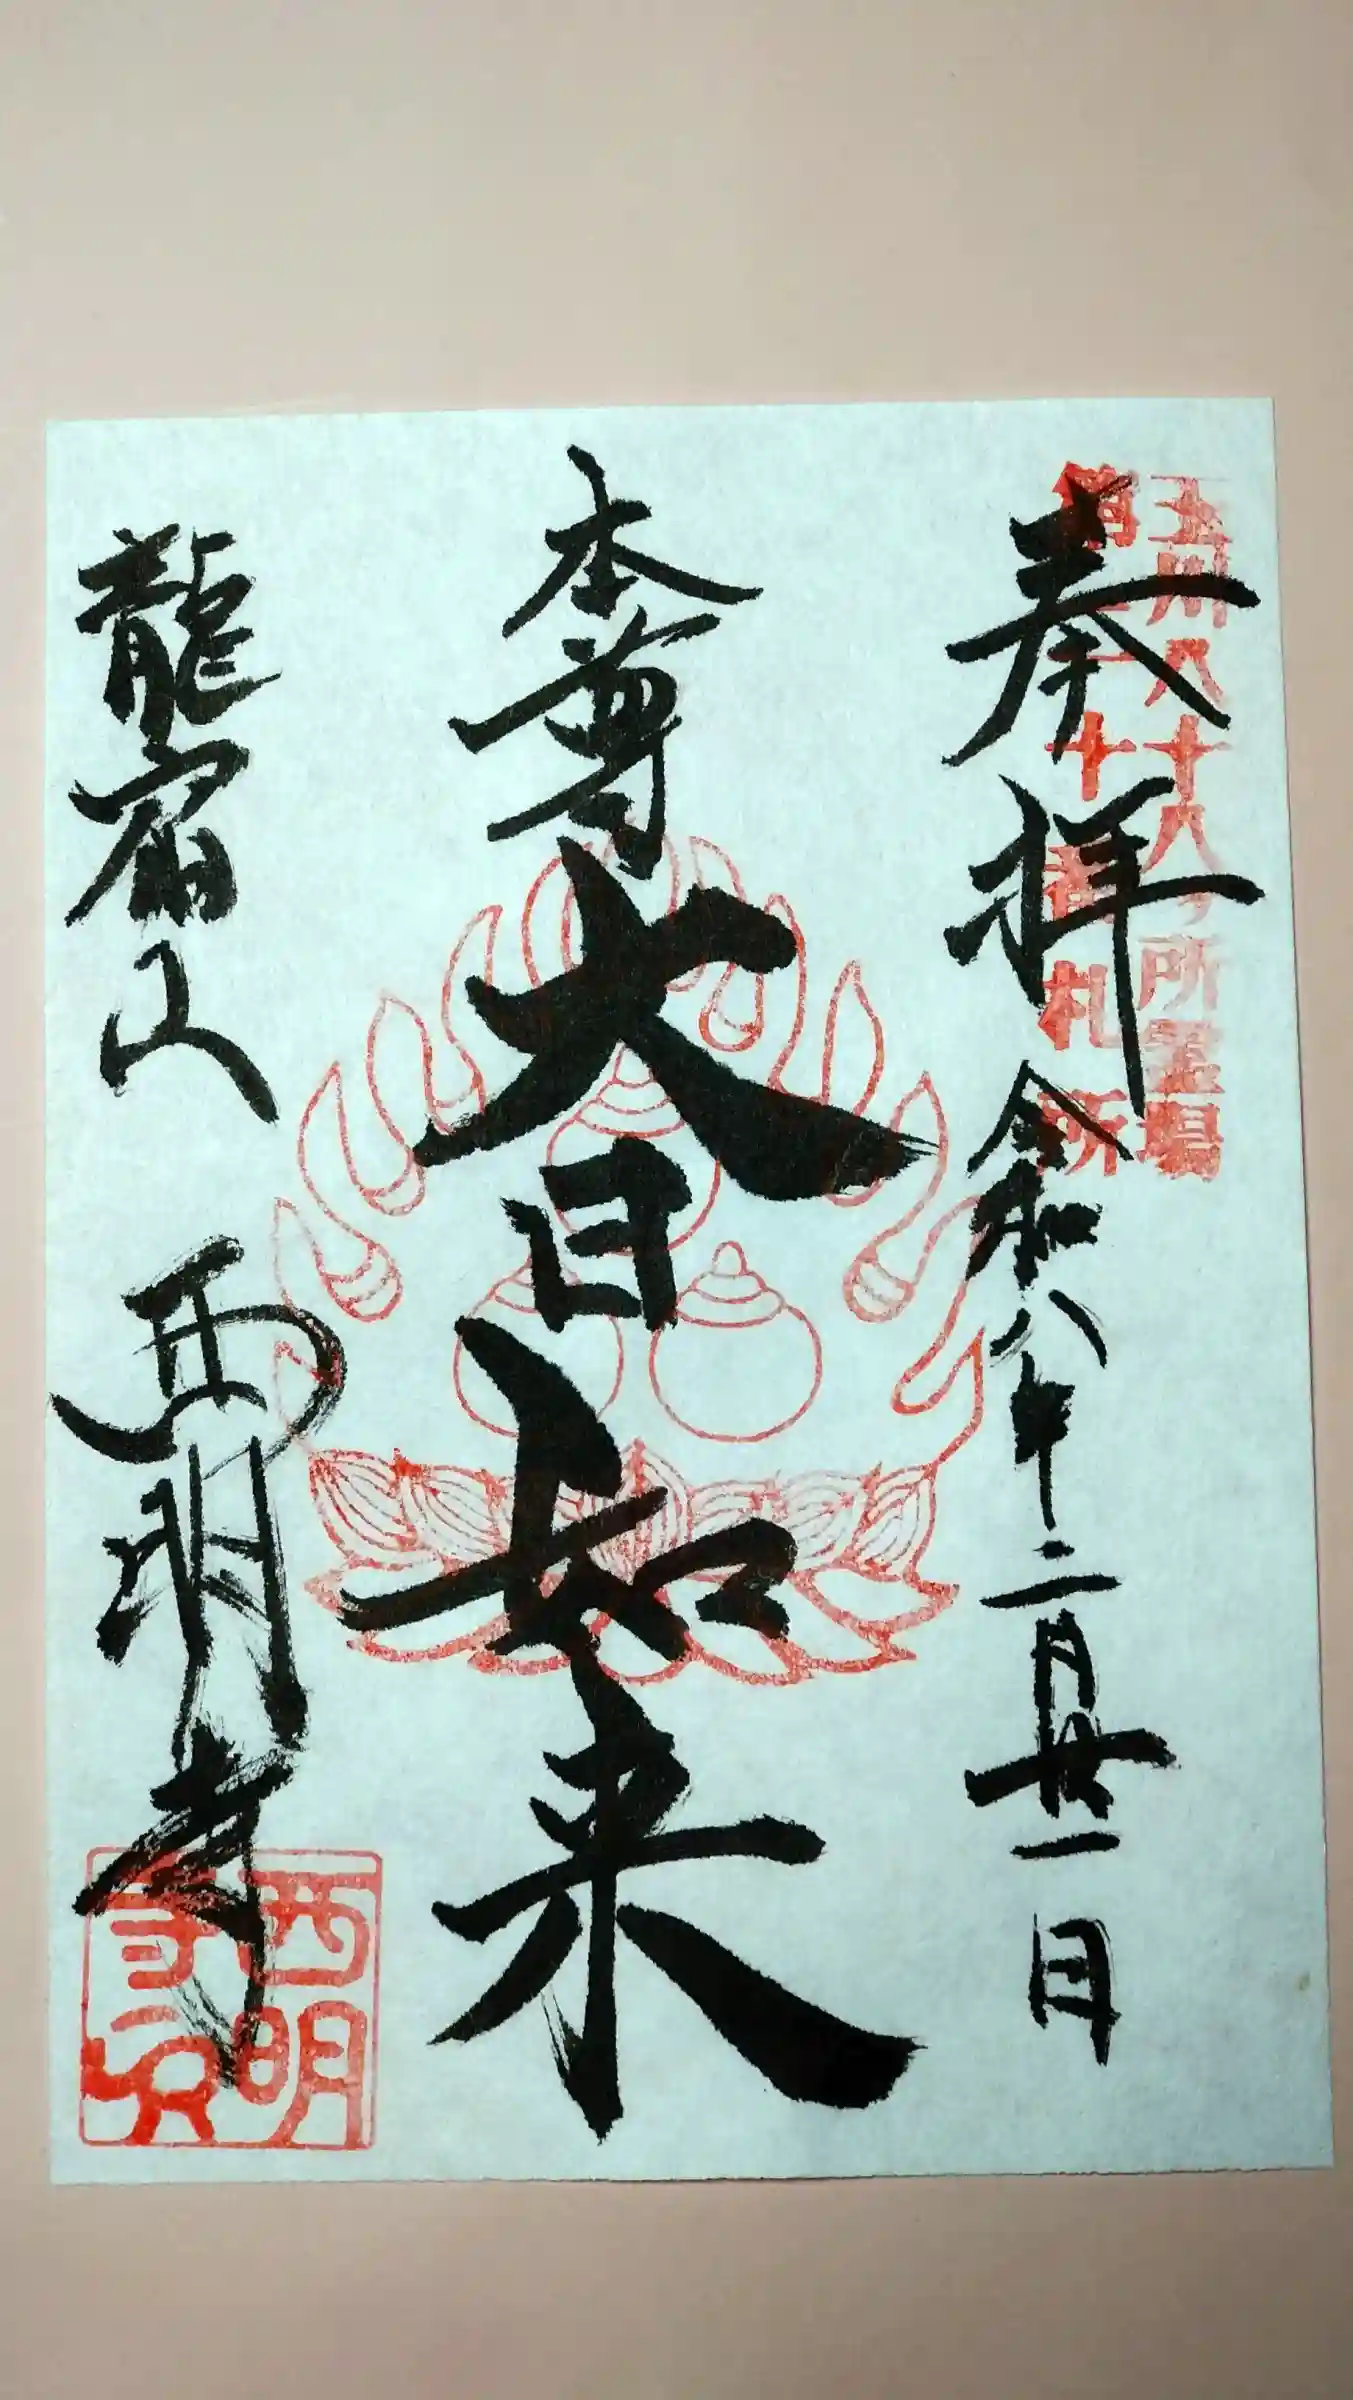 玉川八十八ヶ所霊場
十番札所
奉拝
令和八年二月廿一日
本尊
大日如来
龍宿山
西明寺
西明
寺印